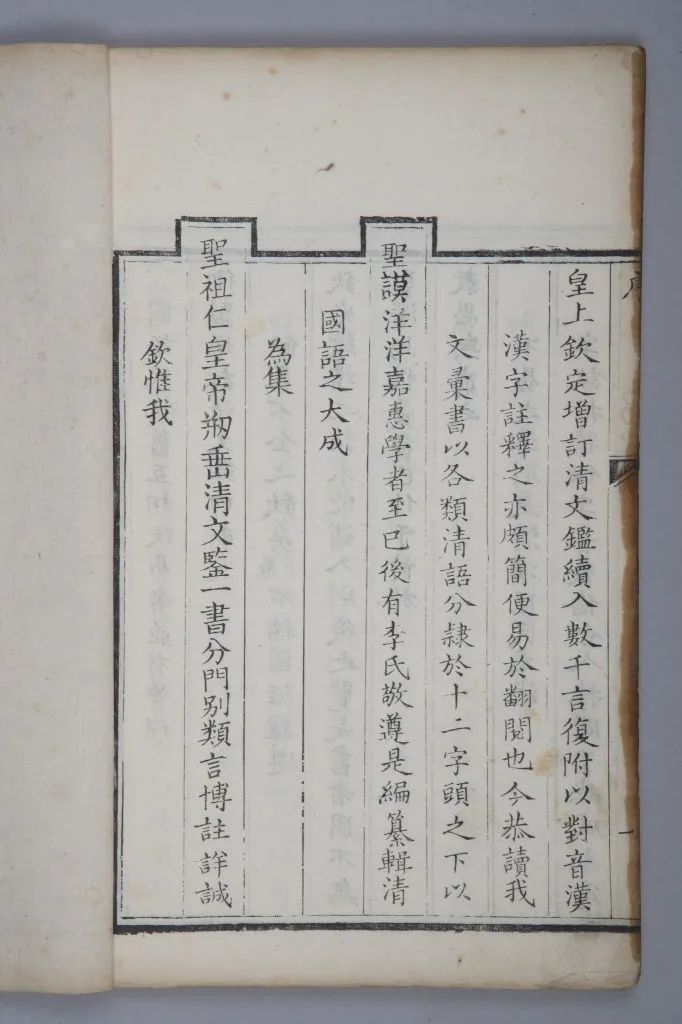 欽惟我
聖祖仁皇帝刱垂清文鋻一書分門別類言博註詳誠
為集
國語之大成
聖謨洋洋嘉惠學者至已後有李氏敬遵是編纂輯清
文彙書以各類清語分隷於十二字頭之下以
漢字註釋之亦頗簡便易於翻閱也今恭讀我
皇上欽定增訂清文鑑續入數千言復附以對音漢
序
一